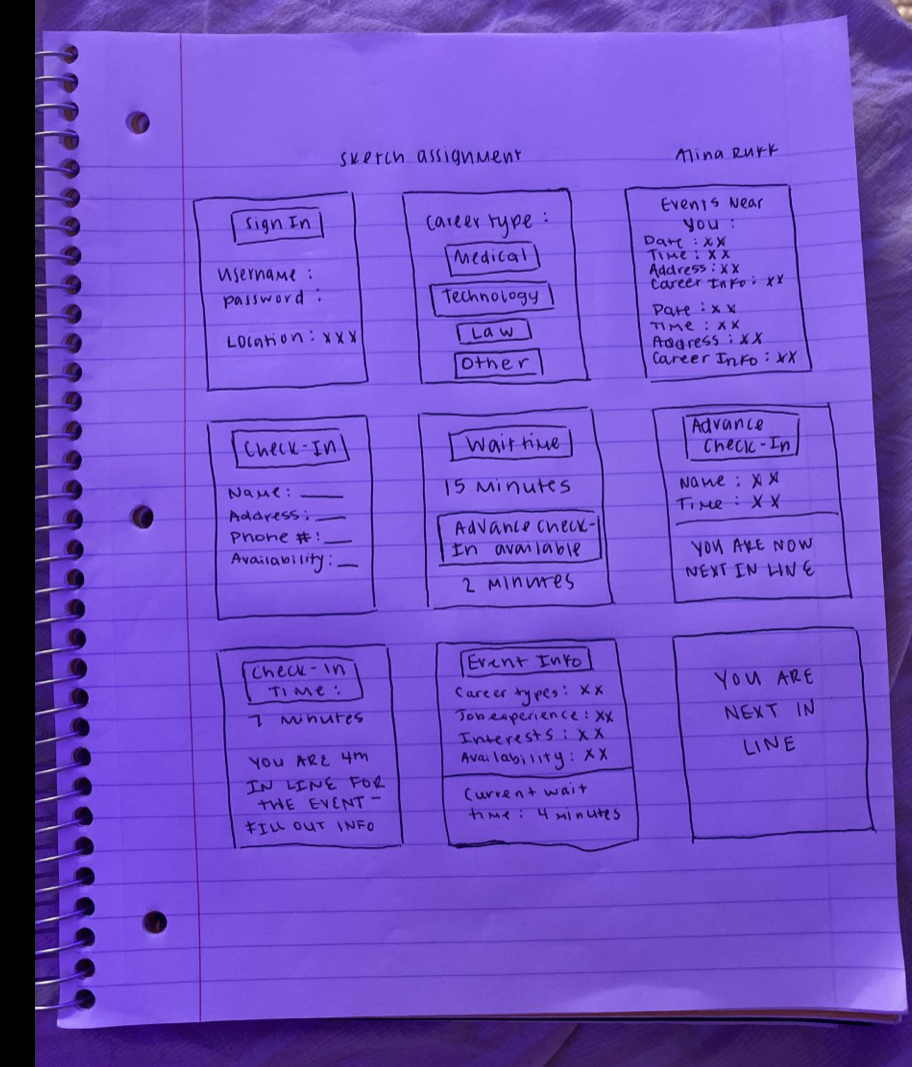 Sketch assignment
Alina Rukk
Sign In
Username :
password :
Location : xxx
Career type :
Medical
Technology
Law
Other
Events Near
You :
Date : xx
Time : xx
Address : xx
Career Info : xx
Date : xx
Time : xx
Address : xx
Career Info : xx
Check-In
Name : ___
Address : ___
Phone # : ___
Availability : __
Wait time
15 Minutes
Advance Check-
In available
2 Minutes
Advance
Check-In
Name : xx
Time : xx
YOU ARE NOW
NEXT IN LINE
Check-in
Time :
7 Minutes
YOU ARE 4th
IN LINE FOR
THE EVENT -
FILL OUT INFO
Event Info
Career types : xx
Job experience : xx
Interests : xx
Availability : xx
Current wait
time : 4 minutes
YOU ARE
NEXT IN
LINE